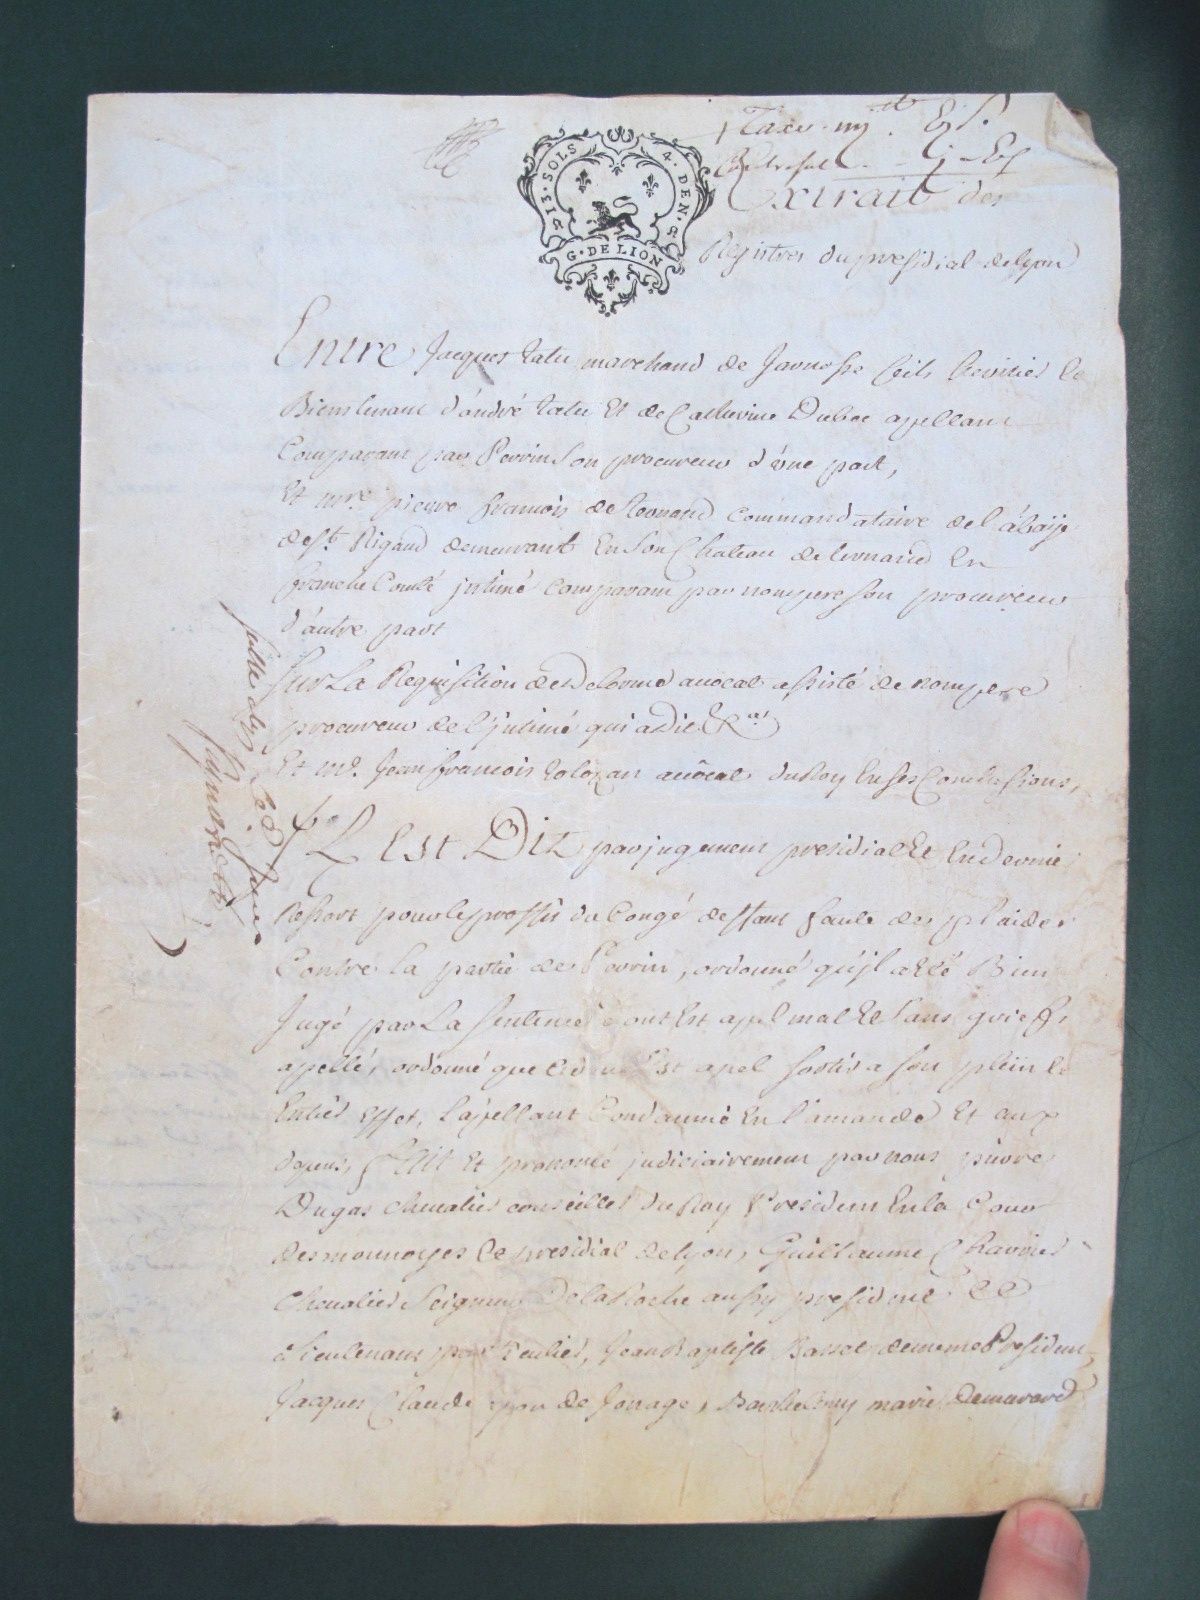 SIX·SOLS 4·DEN·
G·DE LION
Extrait des
Registres du presidial de Lyon
Entre Jacques Tatu marchand de heritier Et
Bientenant d'andré tatu Et de Catherine Dubec apellant
Comparant par Perrin Son procureur d'une part,
Et mre. pierre francois de commandataire de l'abaije
de st. Rigaud demeurant En Son Chateau de En
franche Comté jntimé Comparant par nompere son procureur
d'autre part
Sur La Requisition de Delorme auocat assisté de nompere
procureur de l'jntimé qui a dit
Et me. Jean francois tolozan auocat du Roy En ses Conclusions,
JL Est Dit par jugement presidial Et En dernier
Ressort pour le proffit du Congé deffaut faute de plaider
Contre La partie de Perrin, ordonné qu'jl a Eté Bien
Jugé par La Sentence dont Est apel mal Et sans grieffs
apellé, ordonné que Ce dont Est apel sortira son plein Et
Entier Effet, L'apellant Condamné En l'amande Et aux
depens, fait Et prononcé judiciairement par nous pierre
Dugas cheualier conseiller du Roy President En la Cour
des monnoyes Et presidial de Lyon, Guillaume Charrier
Cheualier Seigneur De la Roche aussy president Et
Lieutenant particulier, Jean Baptiste Basset de meme President,
Jacques Claude yon de Jonage, Barthelemy marie Demurard